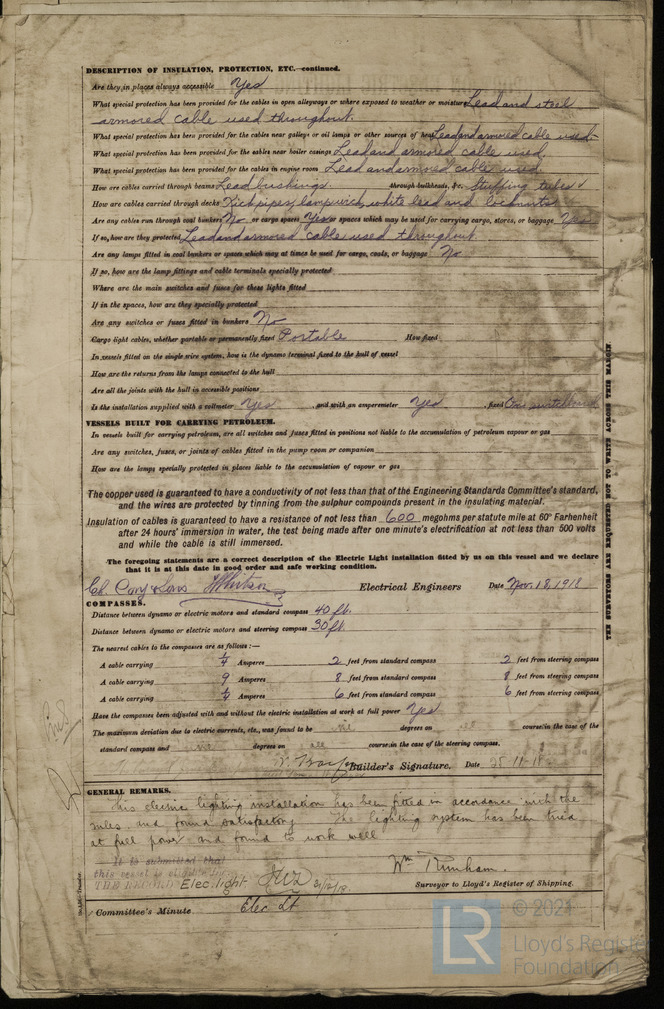 DESCRIPTION OF INSULATION, PROTECTION, ETC.—continued.
Are they, in places always accessible Yes
What special protection has been provided for the cables in open alleyways or where exposed to weather or moisture Lead and steel
armored cable used throughout.
What special protection has been provided for the cables near galleys or oil lamps or other sources of heat Lead and armored cable used.
What special protection has been provided for the cables near boiler casings Lead and armored cable used.
What special protection has been provided for the cables in engine room Lead and armored cable used
How are cables carried through beams Lead bushings. through bulkheads, &c. Stuffing tubes
How are cables carried through decks Kick pipes, lampwick, white lead and locknuts
Are any cables run through coal bunkers No or cargo spaces Yes or spaces which may be used for carrying cargo, stores, or baggage Yes
If so, how are they protected Lead and armored cable used throughout.
Are any lamps fitted in coal bunkers or spaces which may at times be used for cargo, coals, or baggage No
If so, how are the lamp fittings and cable terminals specially protected
Where are the main switches and fuses for these lights fitted
If in the spaces, how are they specially protected
Are any switches or fuses fitted in bunkers No
Cargo light cables, whether portable or permanently fixed Portable How fixed
In vessels fitted on the single wire system, how is the dynamo terminal fixed to the hull of vessel
How are the returns from the lamps connected to the hull
Are all the joints with the hull in accessible positions
Is the installation supplied with a voltmeter Yes , and with an amperemeter Yes , fixed On switchboard
VESSELS BUILT FOR CARRYING PETROLEUM.
In vessels built for carrying petroleum, are all switches and fuses fitted in positions not liable to the accumulation of petroleum vapour or gas
Are any switches, fuses, or joints of cables fitted in the pump room or companion
How are the lamps specially protected in places liable to the accumulation of vapour or gas
The copper used is guaranteed to have a conductivity of not less than that of the Engineering Standards Committee's standard,
and the wires are protected by tinning from the sulphur compounds present in the insulating material.
Insulation of cables is guaranteed to have a resistance of not less than 600 megohms per statute mile at 60° Farhenheit
after 24 hours' immersion in water, the test being made after one minute's electrification at not less than 500 volts
and while the cable is still immersed.
The foregoing statements are a correct description of the Electric Light installation fitted by us on this vessel and we declare
that it is at this date in good order and safe working condition.
Electrical Engineers Date Nov. 18, 1918
COMPASSES.
Distance between dynamo or electric motors and standard compass 40 ft.
Distance between dynamo or electric motors and steering compass 30 ft.
The nearest cables to the compasses are as follows:—
A cable carrying Amperes 2 feet from standard compass 2 feet from steering compass
A cable carrying 9 Amperes 8 feet from standard compass 8 feet from steering compass
A cable carrying Amperes 6 feet from standard compass 6 feet from steering compass
Have the compasses been adjusted with and without the electric installation at work at full power Yes
The maximum deviation due to electric currents, etc., was found to be nil degrees on all course in the case of the
standard compass and nil degrees on all course in the case of the steering compass.
Builder's Signature. Date 25-11-18
GENERAL REMARKS.
This electric lighting installation has been fitted in accordance with the
rules, and found satisfactory. The lighting system has been tried
at full power and found to work well
It is submitted that
this vessel is eligible for
THE RECORD Elec. light
Wm Runham.
Surveyor to Lloyd's Register of Shipping.
Committee's Minute Elec Lt
THE SURVEYORS ARE REQUESTED NOT TO WRITE ACROSS THIS MARGIN
LR
© 2021
Lloyd's Register
Foundation